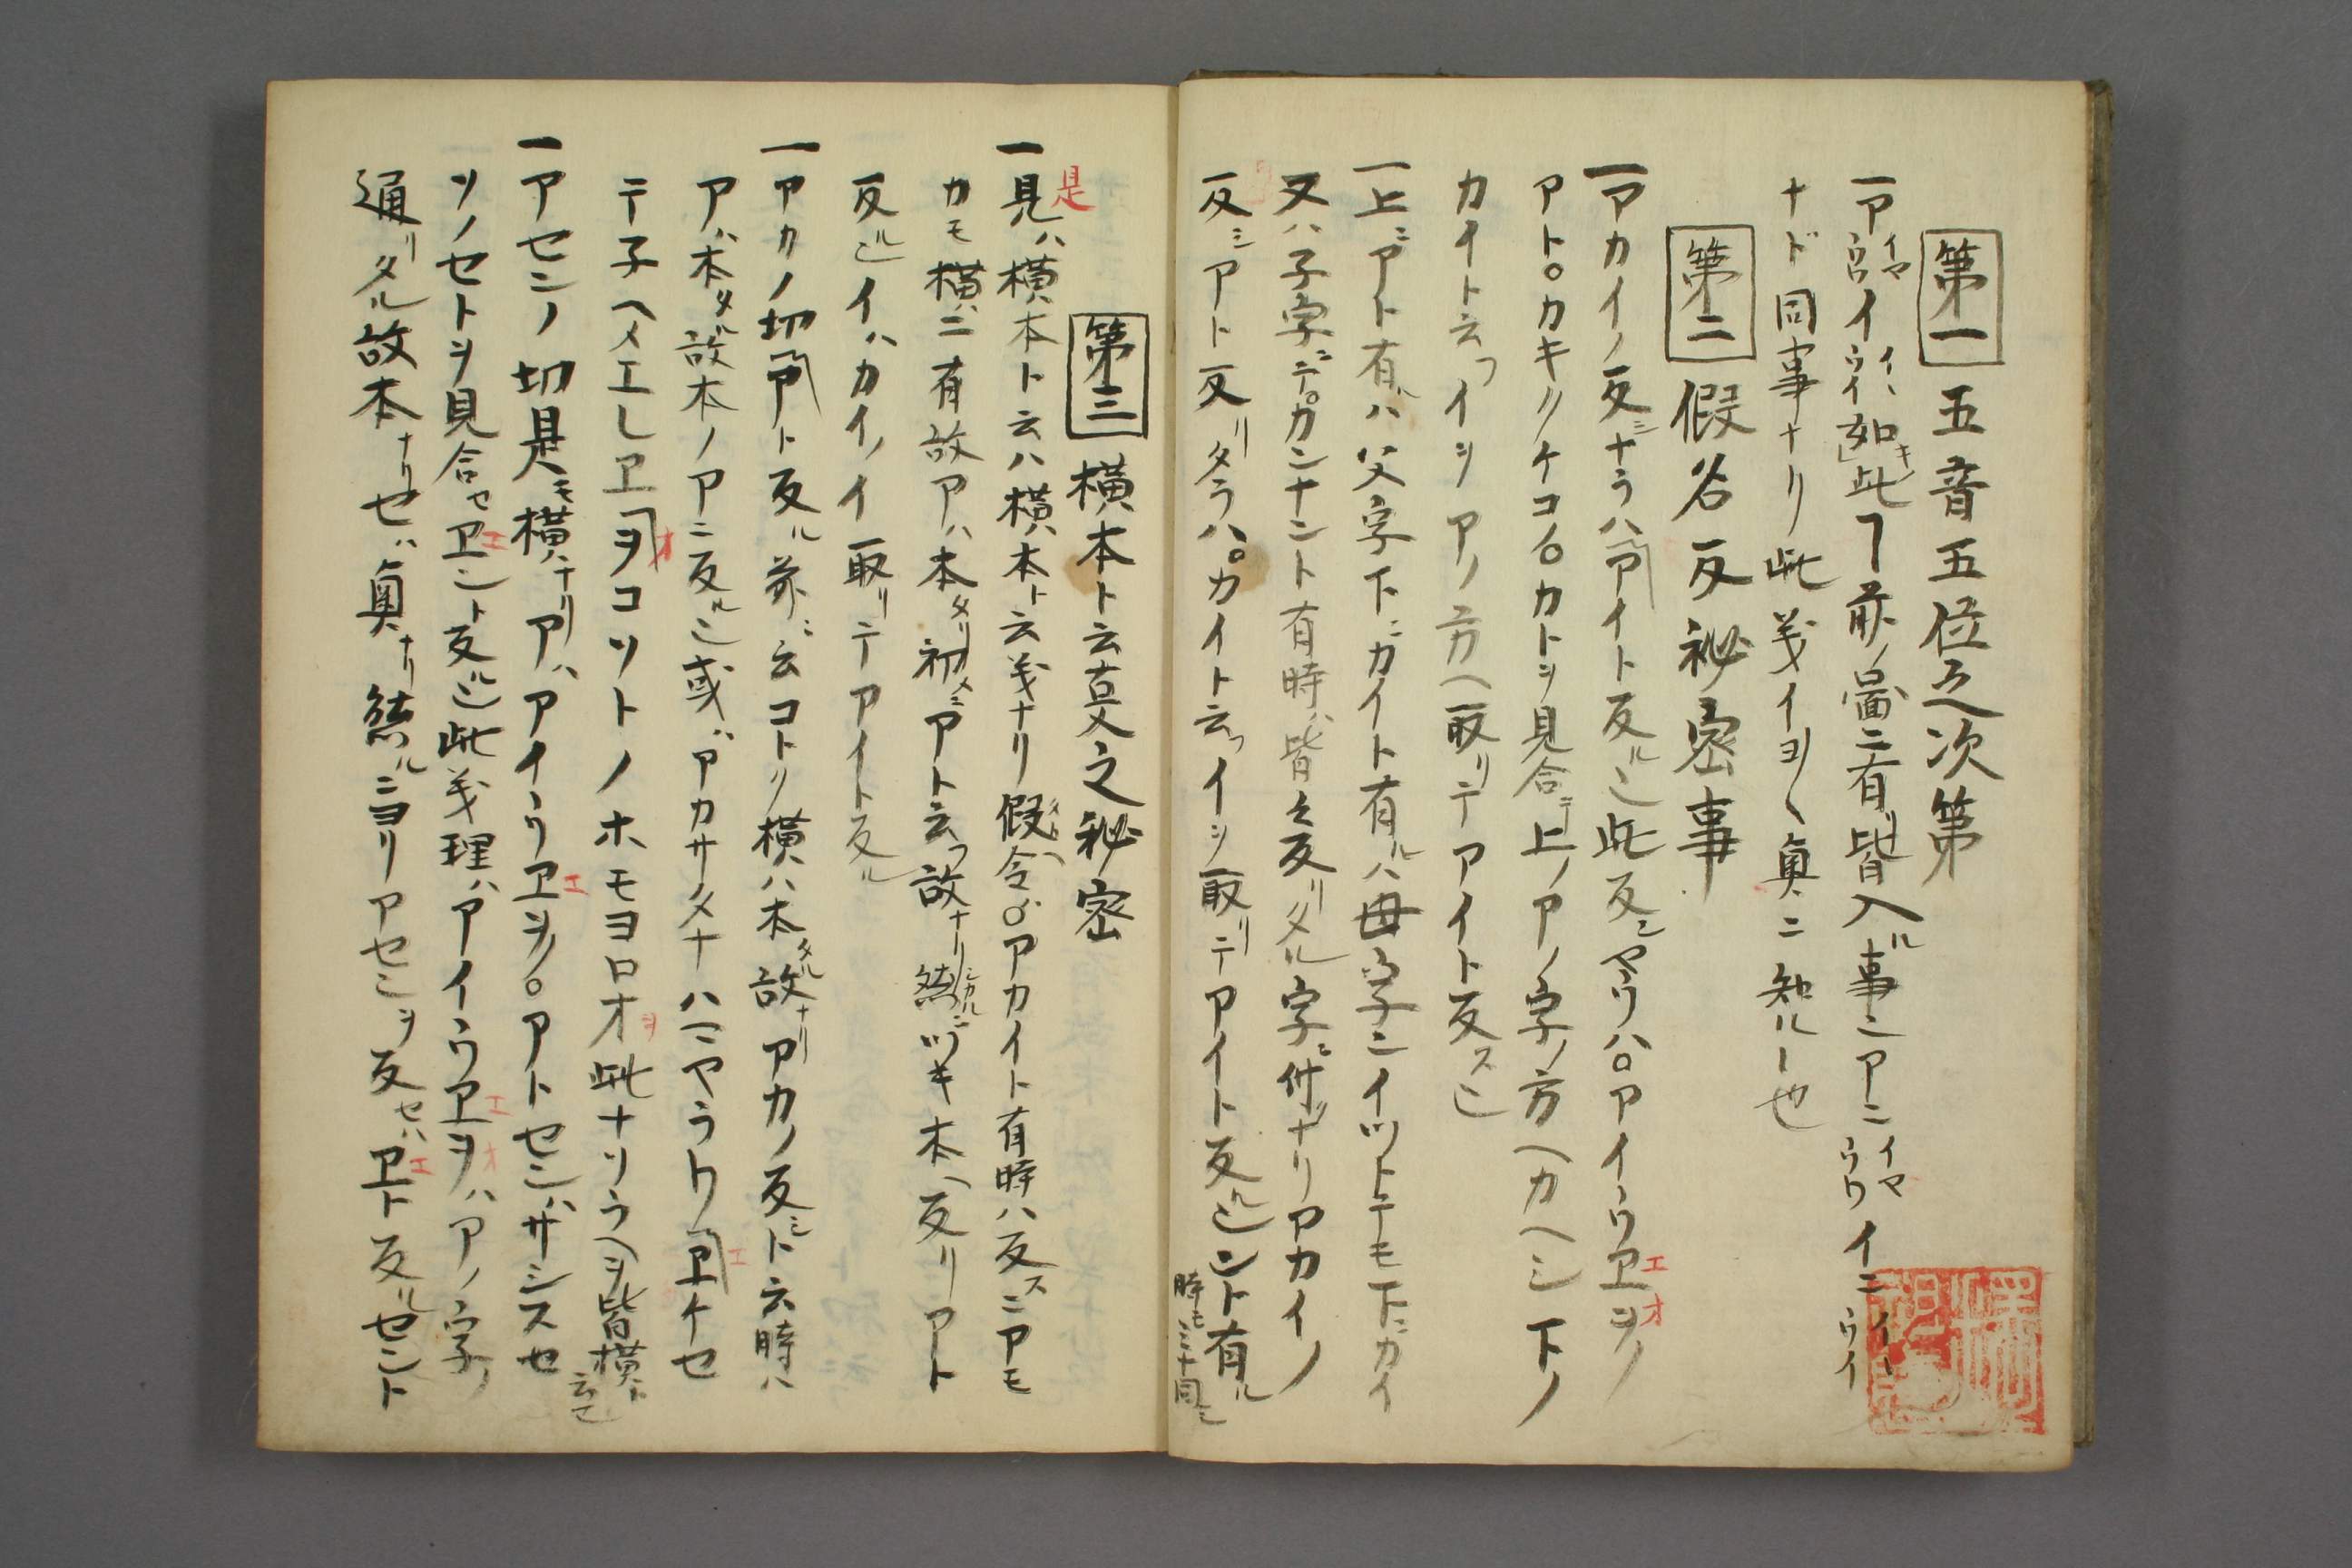 第一 五音五位之次第
一アイヤウワイイヽウイ如此ヿ前ノ圖ニ有リ皆入ル事ニアニイヤウワイニイヽウイ
ナド同事ナリ此義イヨ〱真ニ知ルヿ也
第二 假名反祕密事
一アカイノ反ニナラハアイト反ル也此反シヤウハ。アイウヱヲノ
アト。カキクケコノ。カトヲ見合テ上ノアノ字ノ方ヘカヘシ下ノ
カイト云フイヲアノ方ヘ取リテアイト反ス也
一上ニアト有ルハ父字下ニカイト有ルハ母字ニイツトテモ下ニカイ
又ハ子字ニテ。カンナント有時ハ皆〻反リタル字ニ付ナリアカイノ
反シアト反リタラハ。カイト云フイヲ取リテアイト反ル也ント有ル
時モミナ同シ
第三 横本ト云真之秘密
一見ハ横本ト云ハ横ハ本ト云義ナリ假令ハ。アカイト有時ハ反スニアモ
是
カモ横ニ有故アハ本タリ初メニアト云フ故ナリ然ルニツキ本ヘ反リアト
反ル也イハカイノイ取リテアイト反ル
一アカノ切アト反ル前ニ云コトク横ハ本タル故ナリアカノ反シト云時ハ
アハ本タル故本ノアニ反ル也或ハアカサタナハマヤラワヱケセ
エ
テ子ヘメエレヱヲコソトノホモヨロオ此ナソラヘヲ皆横ト
云也
オ
ヲ
一アセンノ切是モ横ナリアハアイウヱヲノ。アトセンハサシスセ
エ
ソノセトヲ見合セヱント反ル也此義理ハアイウヱヲハアノ字ノ
エ
エ
オ
通リタル故本ナリセハ真ナリ然ルニヨリアセンヲ反セハヱト反ルセント
エ